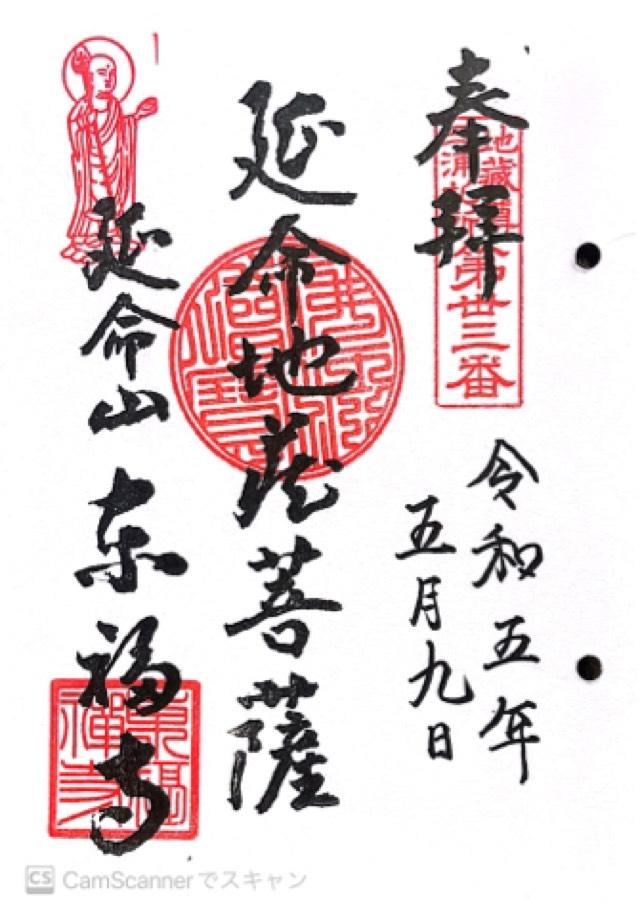 奉拝
第丗三番
令和五年
五月九日
延命地蔵菩薩
延命山 东福寺
CS CamScannerでスキャン